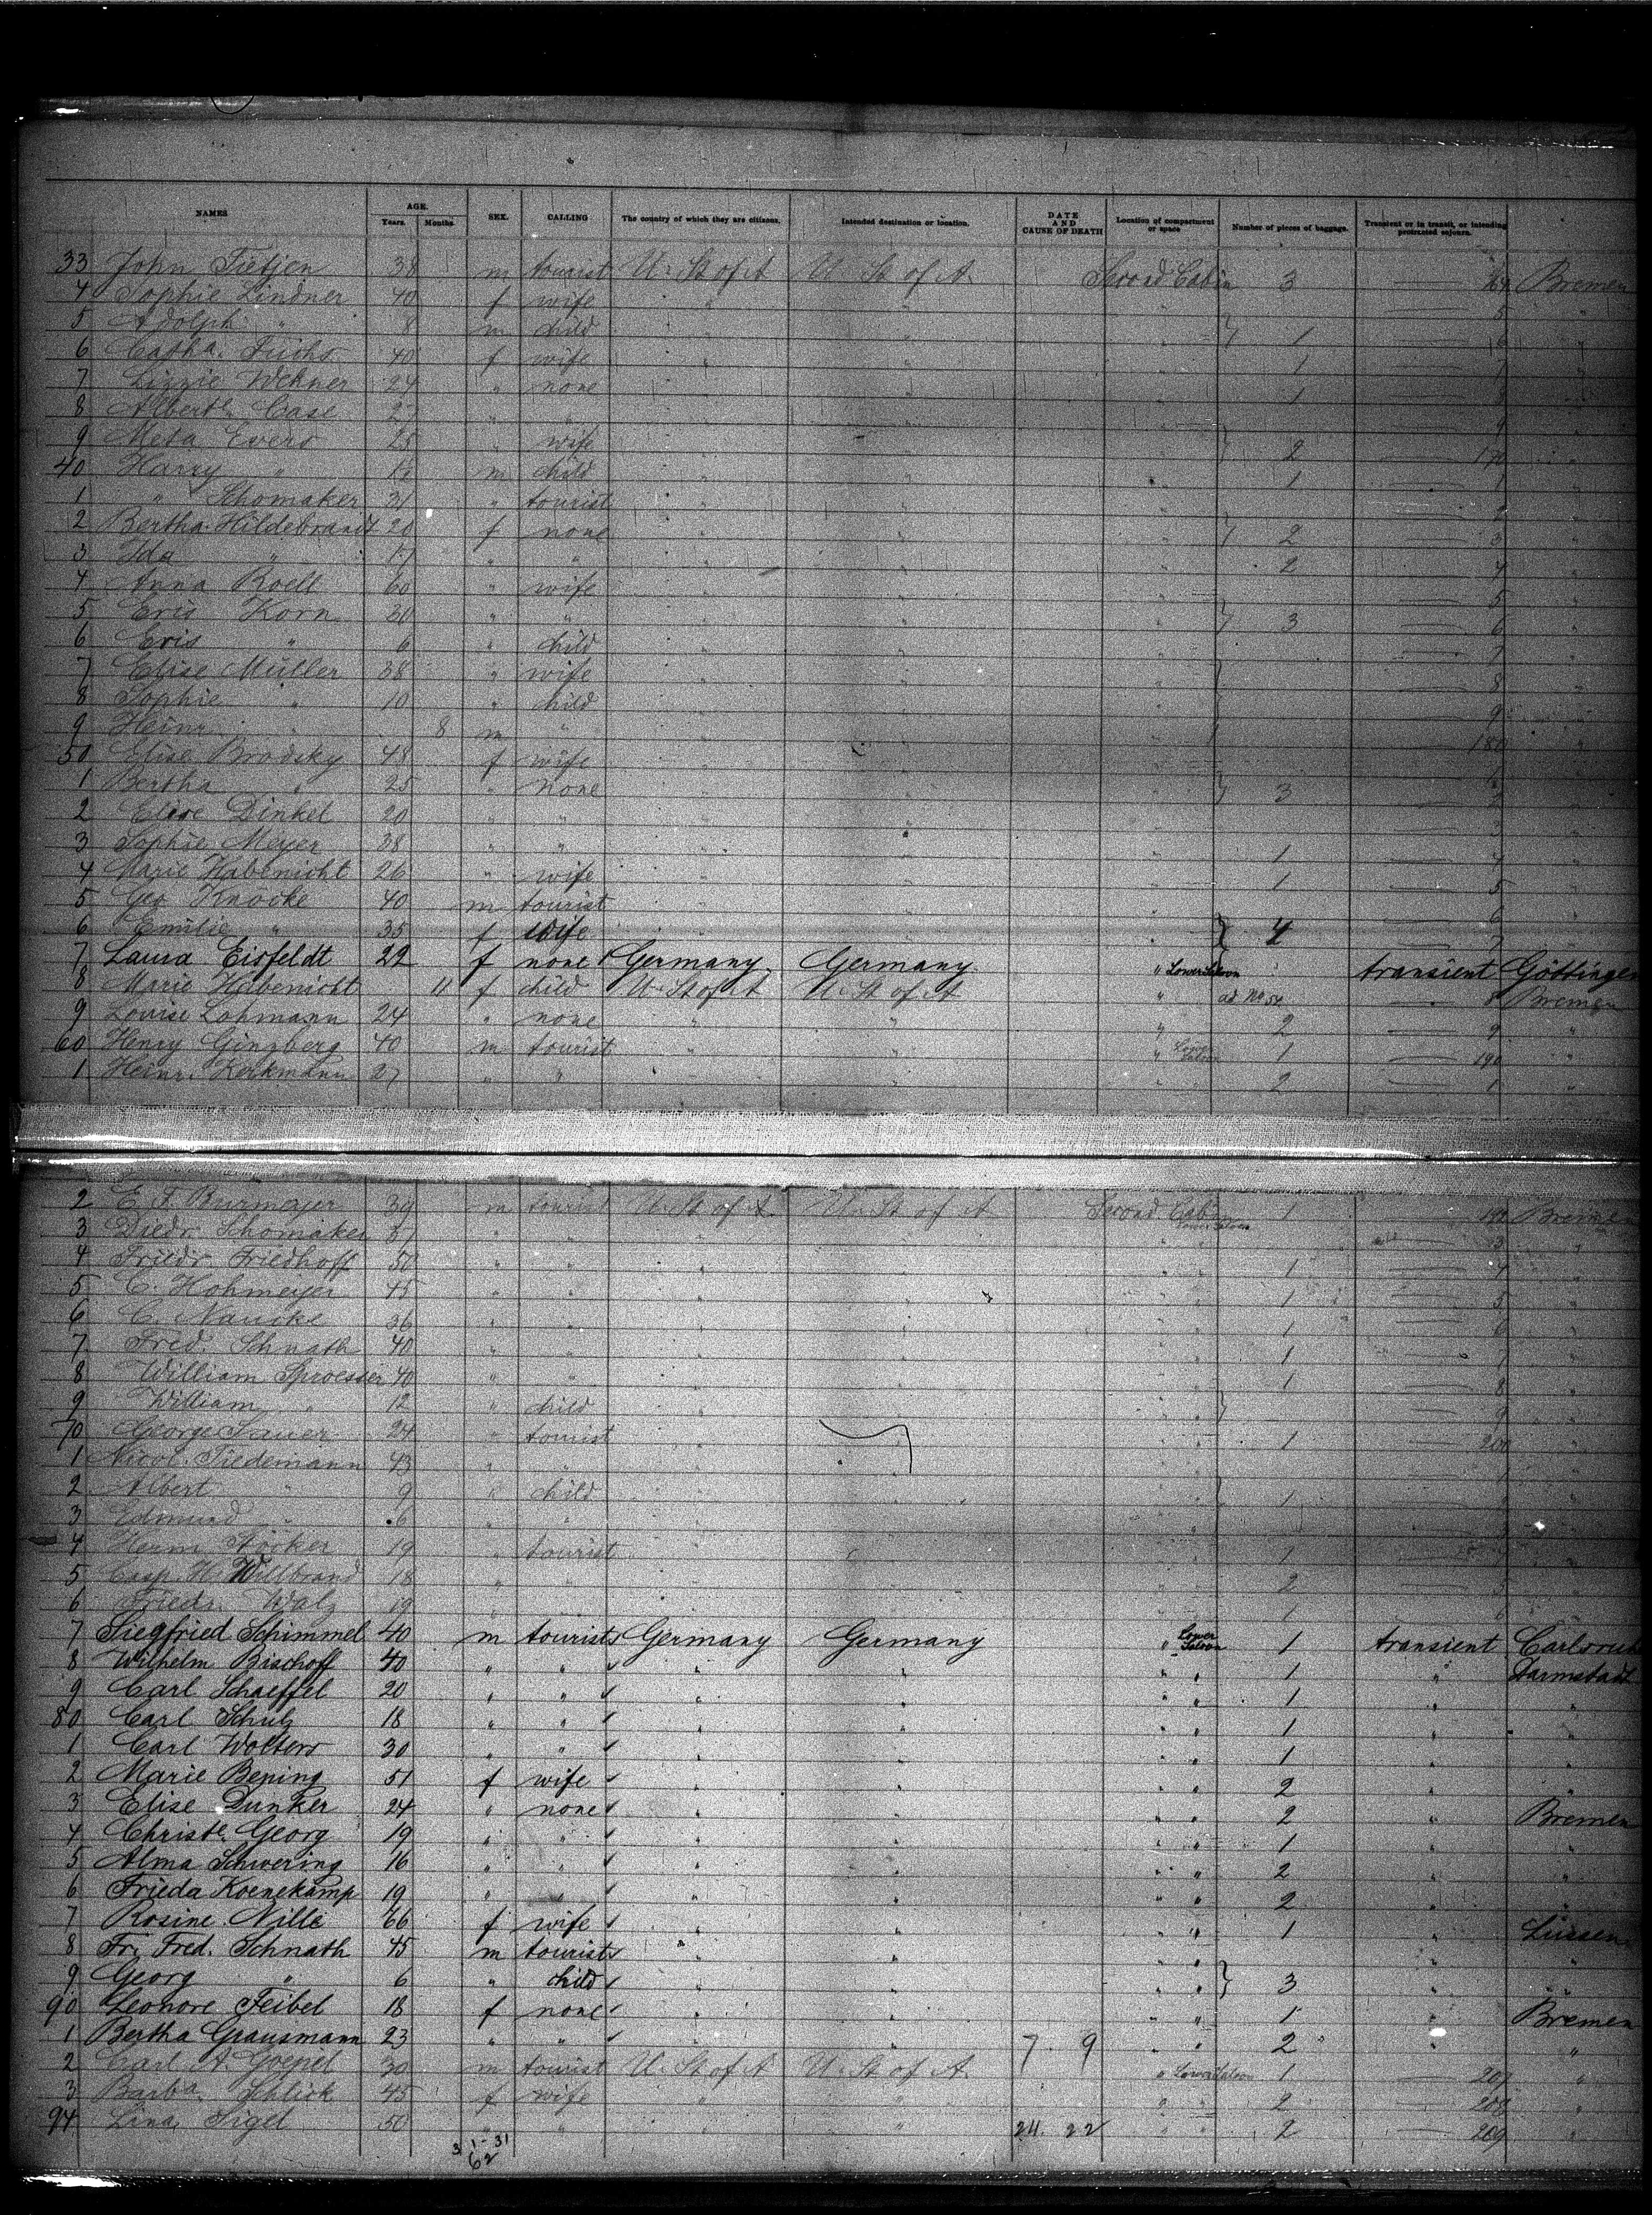 NAMES AGE. Years. Months. SEX. CALLING The country of which they are citizens. Intended destination or location. DATE AND CAUSE OF DEATH Location of compartment or space Number of pieces of baggage. Transient or in transit, or intending protracted sojourn.
33 John Tietjen 38 m tourist U. St of A U. St of A Second Cabin 3 Bremen
4 Sophie Lindner 40 f wife " 5 "
5 Adolph " 8 m child 1 6
6 Cath.a Fuchs 40 f wife 1 7
7 Lizzie Wehner 24 " none 1 8
8 Case 9
9 Meta Evers 25 " wife 2 170
40 Harry " m child 1 1
1 " Schomaker 31 " tourist 2
2 Bertha Hildebrandt 20 f none 2 3
3 Ida " 17 " " 2 4
4 Anna Roell 60 " wife 5
5 Korn 30 " " 3 6
6 " 6 " child 7
7 Elise Müller 38 " wife 8
8 Sophie " 10 " child 9
9 Heinr. " 8 m " 180
50 Elise Brodsky 48 f wife
1 Bertha " 25 " none 3 2
2 Dinkel 20 " " 3
3 Sophie Meyer 38 " " 1 4
4 Marie Habenicht 26 " wife 1 5
5 Geo Knocke 40 m tourist 6
6 Emilie " 35 f wife 4 7
7 Laura Eisfeldt 22 f none Germany Germany " Lower Saloon transient Göttingen
8 Marie Habenicht 11 f child U. St of A U. St of A " ad No 54 8 Bremen
9 Louise Lohmann 24 " none " " " 2 9 "
60 Henry Ginzberg 40 m tourist " Lower Saloon 1 190 "
1 Heinr. Kerkmann 27 " " 2 1 "
2 E. F. Burmajer 39 m tourist U. St of A U. St of A Second Cabin Lower Saloon 1 192 Bremen
3 Diedr. Schomaker " " 3
4 Friedr. Friedhoff 50 " " 1 4
5 C. Hohmeyer 45 " " 1 5
6 C. Naucke 36 " " 1 6
7 Fred. Schnath 40 " " 1 7
8 William Sproesser 40 " " 1 8
9 William " 12 " child 9
70 George Sauer 24 " tourist 1 200
1 Nicol. Tiedemann 43 " " 1
2 Albert " 9 " child 1 2
3 Edmund " 6 " " 3
4 Herm. Stöcker 19 " tourist 1 4
5 Casp. H. Willbrand 18 " " 2 5
6 Friedr. Walz 19 " " 1 6
7 Siegfried Schimmel 40 m tourist Germany Germany " Lower Saloon 1 transient Carlsruhe
8 Wilhelm Bischoff 40 " " " " " " 1 " Darmstadt
9 Carl Schaeffel 20 " " " " " " 1 " "
80 Carl Schulz 18 " " " " " " 1 " "
1 Carl Wolters 30 " " " " " " 1 " "
2 Marie Beping 51 f wife " " " " 2 " "
3 Elise Dunker 24 " none " " " " 2 " Bremen
4 Christe. Georg 19 " " " " " " 1 " "
5 Alma Schwering 16 " " " " " " 2 " "
6 Frieda Koenekamp 19 " " " " " " 2 " "
7 Rosine Nille 66 f wife " " " " 1 "
8 Fr. Fred. Schnath 45 m tourist " " " " " "
9 Georg " 6 " child " " " " 3 " "
90 Leonore Feibel 18 f none " " " " 1 " Bremen
1 Bertha Grausmann 23 " " " " 7 9 " " 2 " "
2 Carl A. Goepel 30 m tourist U. St of A U. St of A " Lower Saloon 1 207 "
3 Barba. Schlick 45 f wife " " " " 2 208 "
94 Lina Sigel 50 " " " " 24. 22 " " 2 209 "
3 1-31
62